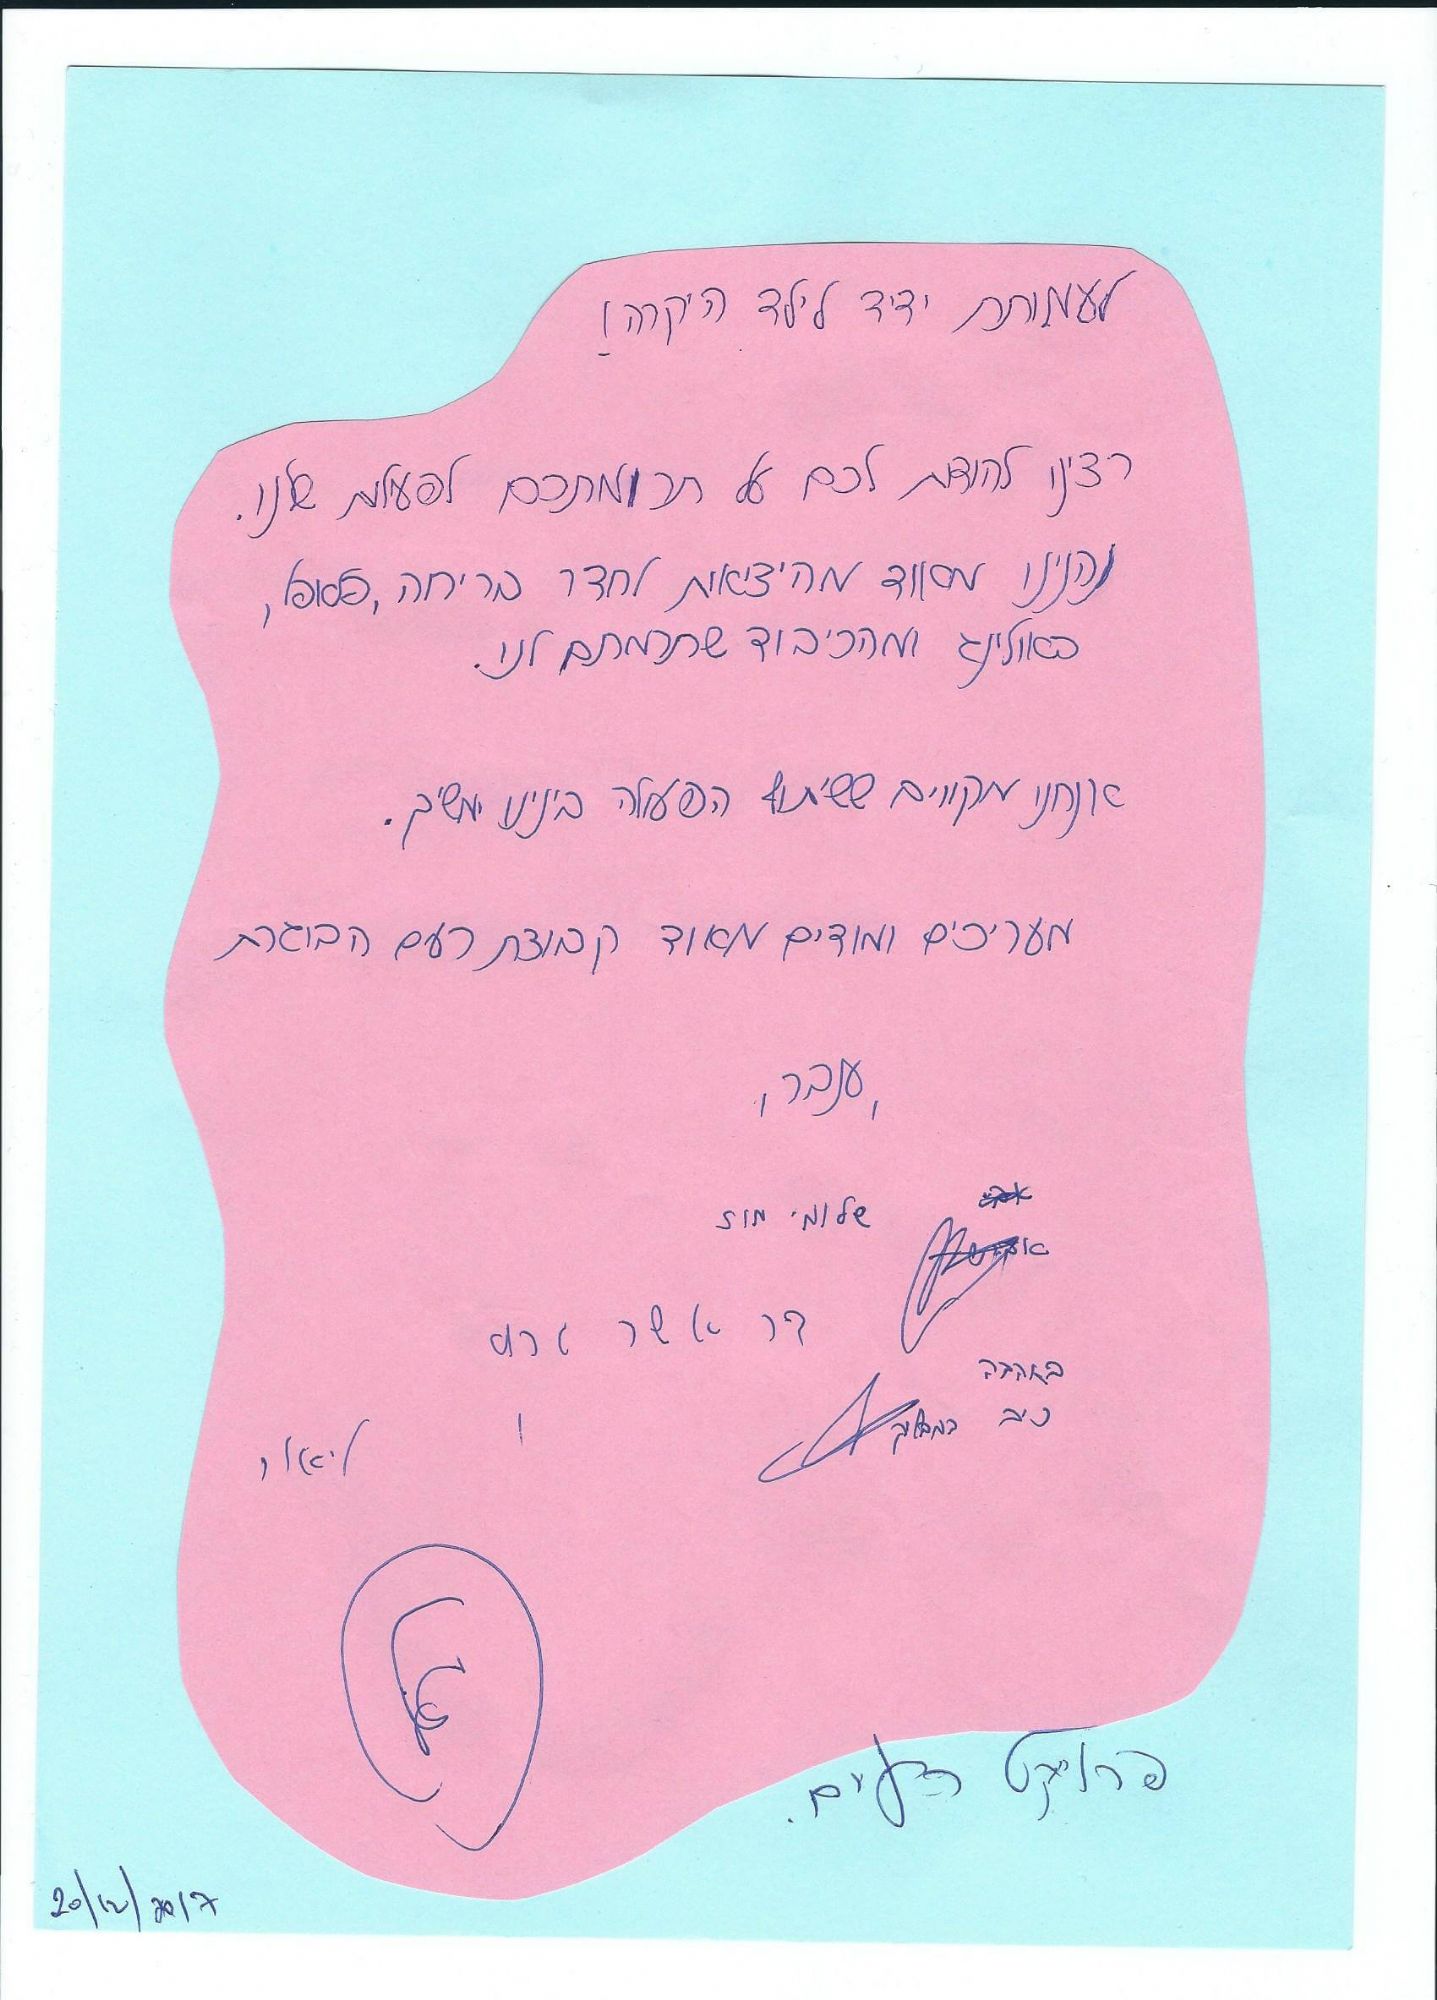 לעמותת ידיד לילד היקרה!
רצינו להודות לכם על תרומתכם לפעילות שלנו.
נהנינו מאוד מהיציאות לחדר בריחה, פלאפל,
באולינג ומהכיבוד שתרמתם לנו.
אנחנו מקווים ששיתוף הפעולה בינינו ימשיך.
מעריכים ומודים מאוד קבוצת רעים הבוגרת
, ענבר,
שלומי מוז
אשר
באהבה
ליאור
פרויקט רעים.
20/12/2017